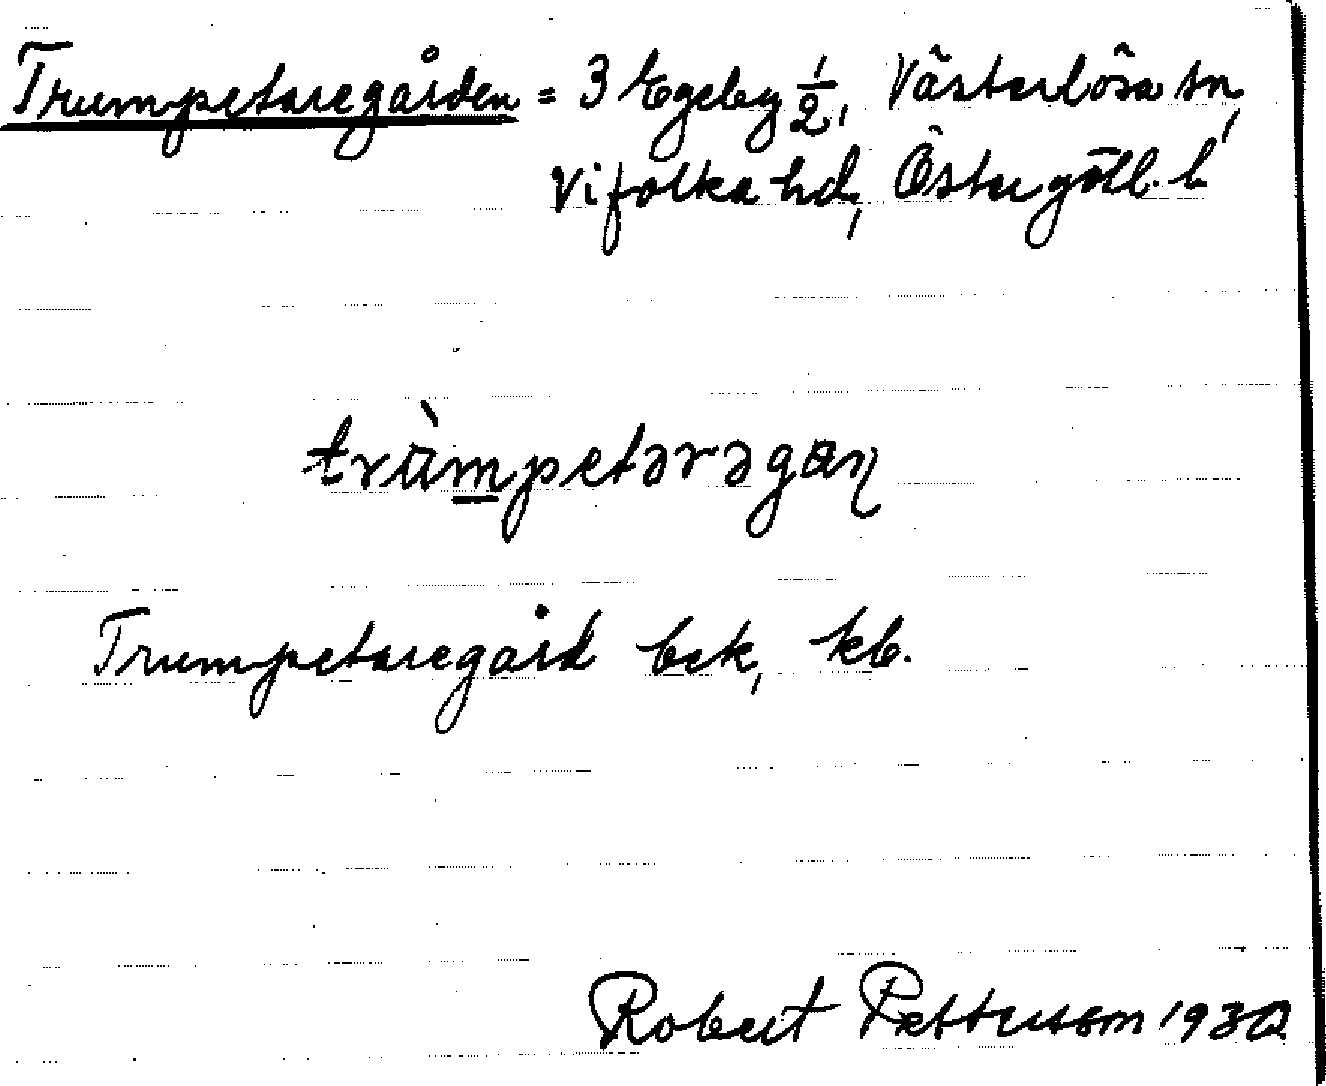 Trumpetaregården = 3 Egeby 1/2, Västerlösa sn,
Vifolka hd, Östergötl. l.
trùmpetərəgaɳ
Trumpetaregård bek, kb.
Robert Pettersson 1930